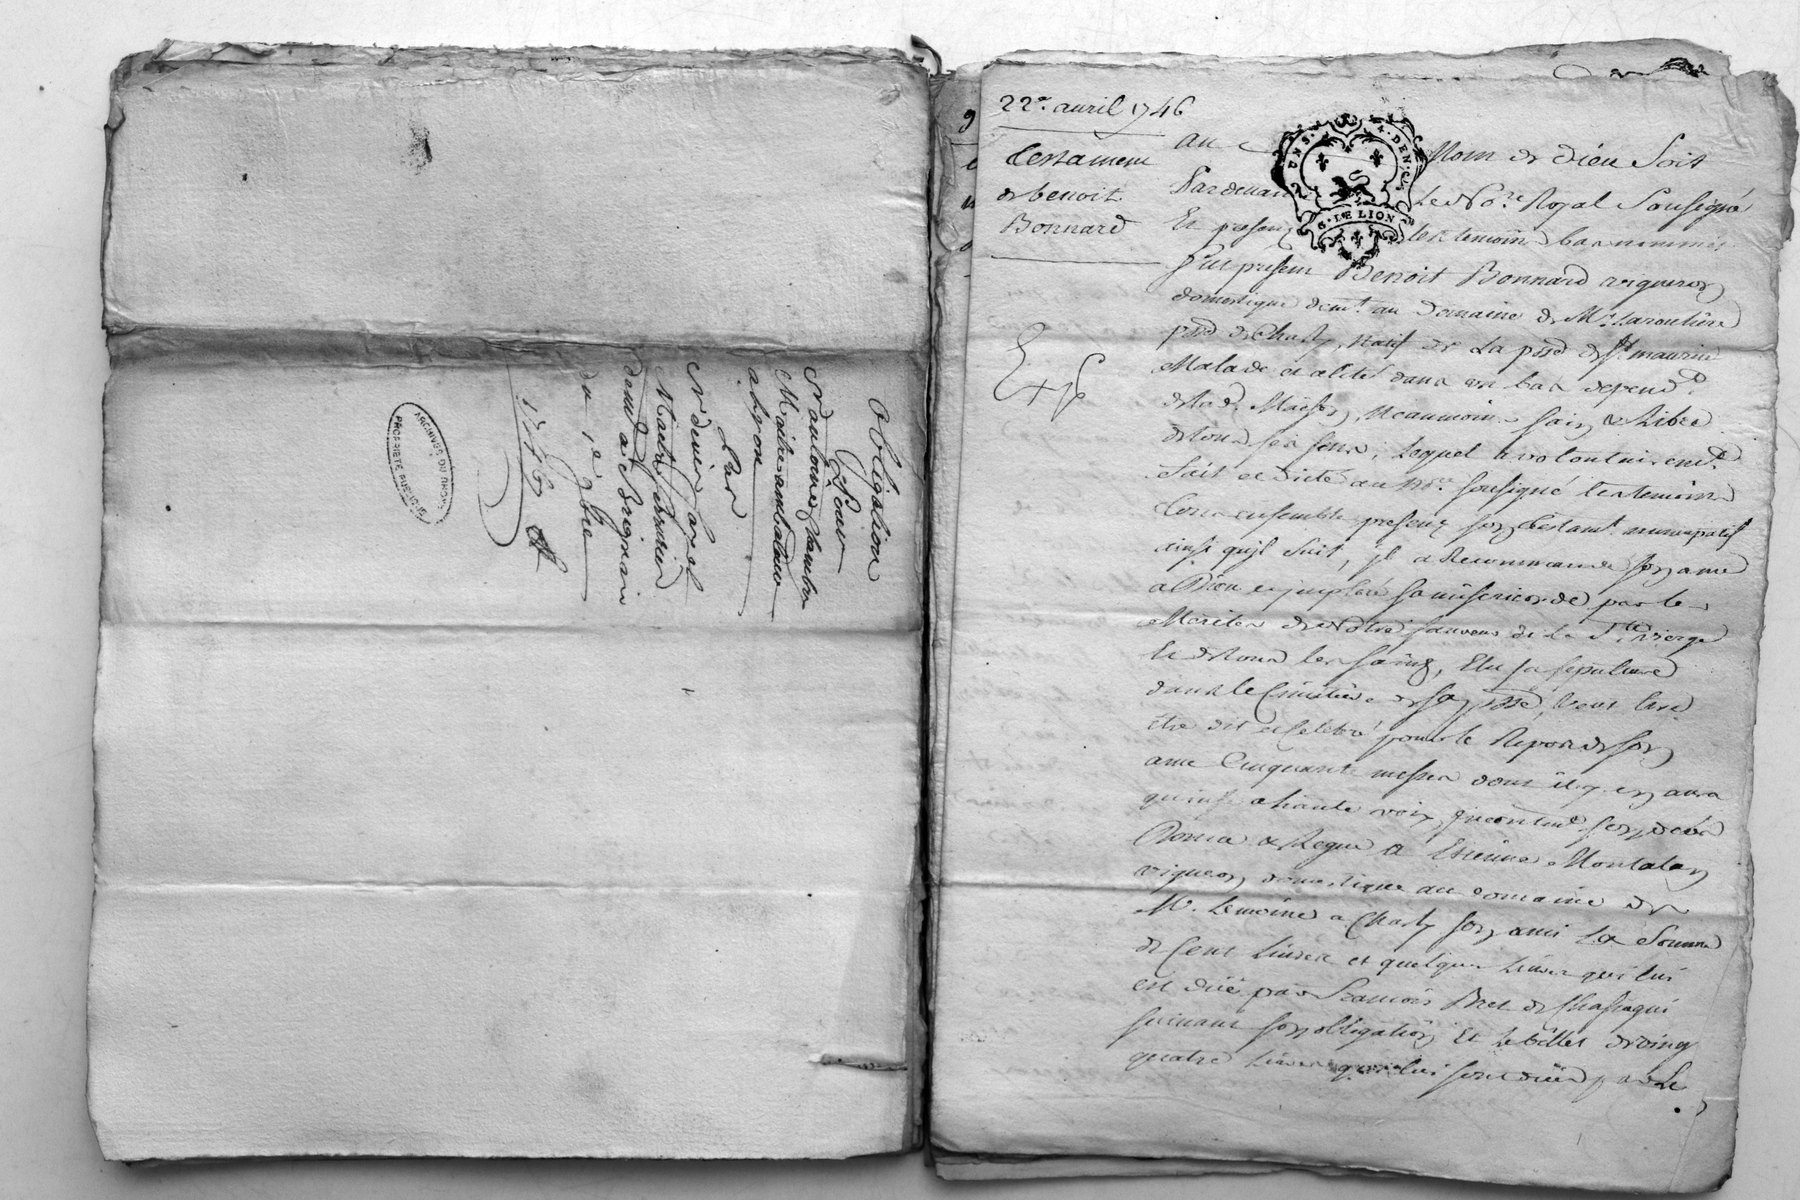 Obligation
Pour
Sr antoine
Maitre
a lyon
Par
Sr denis
demt a St Brignais
du 1e 9bre
1746
ARCHIVES DU RHONE
PROPRIETE PUBLIQUE
22e. auril 1746
Testament
de benoit
Bonnard
au Nom de dieu Soit
Pardeuant Le Nore. Royal Sousigné
Et presens les temoins bas nommés
fut present Benoit Bonnard vigneron
domestique demt. au Domaine de Mr.
psse de Charly, natif de La psse de St maurice
Malade et alité dans un bas depend.
de lad. Maison, Neaumoins sain & Libre
de tous ses sens, Lequel a volontairemt.
fait et dicté au Nore. sousigné les temoins
Tous ensemble presens son testamt. nuncupatif
ainsi quil suit, il a Recommandé son ame
a Dieu imploré sa misericorde par les
Merites de Notre sauveur de la Ste. vierge
Et de tous les saints, Elu sa sepulture
dans le Cimetiere de sa psse, Veut
etre dit et Celebré pour le Repos de son
ame Cinquante messes dont il y en aura
quinse a haute voix son deces
Donne & Legue a Etienne Montalan
vigneron domestique au domaine de
Mr. Lemoine a Charly son ami La Somme
de Cent Liures et quelques Liures qui lui
est düe par Francois Bret de
suivant son obligation Et Le billet de vingt
quatre Liures qui lui sont dües par Le
U N S. 4. D E N.
G. LE LION